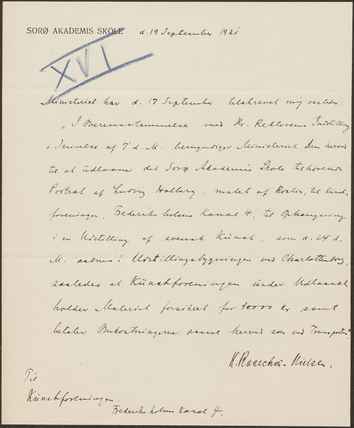 SORØ AKADEMIS SKOLE d. 19 September 1921
XVI
Ministeriet har d. 17 September tilskrevet mig saaledes:
„I Overensstemmelse med Hr. Rektorens Indstilling
i Skrivelse af 7' d. M. bemyndiger Ministeriet Dem herved
til at udlaane det Sorø Akademis Skole tilhørende
Portræt af Ludvig Holberg, malet af Roslin, til Kunst-
foreningen, Frederiksholms Kanal 4, til Ophængning
i en Udstilling af svensk Kunst, som d. 24 d.
M. aabnes i Udstillingsbygningen ved Charlottenborg,
saaledes at Kunstforeningen under Udlaanet
holder Maleriet forsikret for 40000 Kr samt
betaler Omkostningerne saavel herved som ved Transporten."
Til
Kunstforeningen
Frederiksholms Kanal 4.